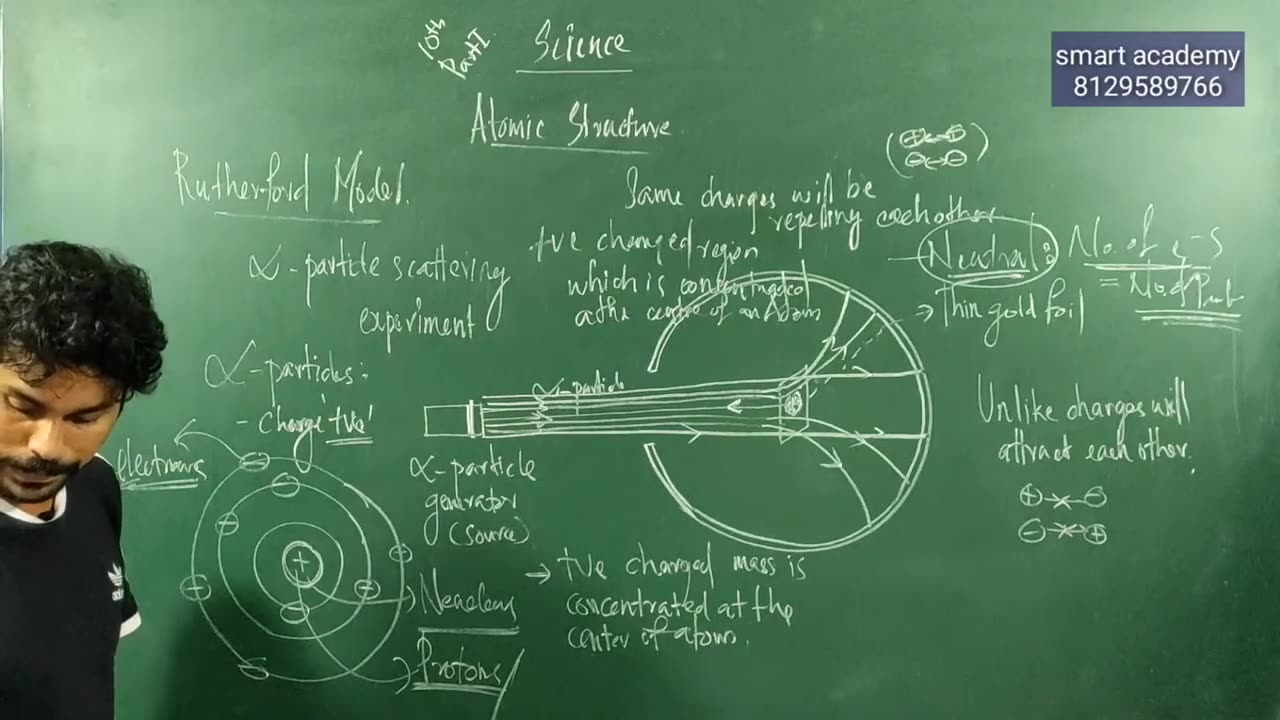 10th
Part I
Science
smart academy
8129589766
Atomic Structure
Rutherford Model.
Same charges will be
repelling eachother
α - particle scattering
experiment
+ve charged region
which is
at the centre of an atom
Neutral : No. of e-s
= No. of Prot
→ Thin gold foil
α - particles :
- Charge '+ve'
α-particle
Unlike charges will
attract each other.
electrons
α-particle
generator
(source)
Nucleus
Protons
→ +ve charged mass is
concentrated at the
center of atom.